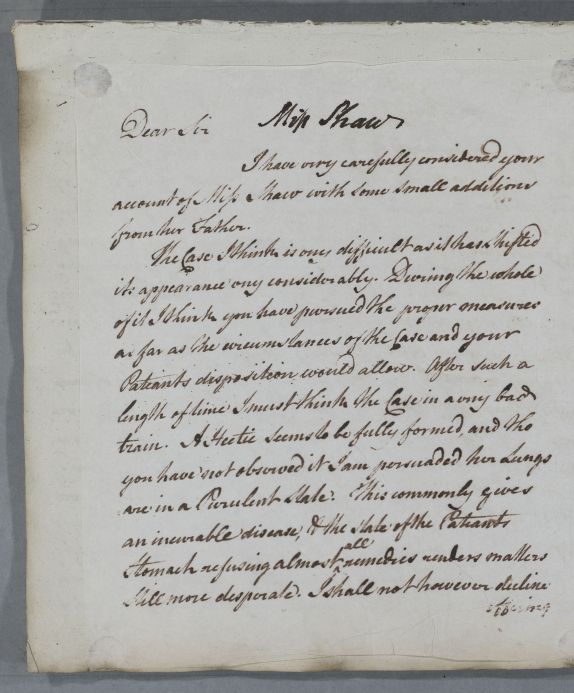 Miss Shaw
Dear Sir
I have very carefully considered your
account of Miss Shaw with some small additions
from her Father.
The Case I think is very difficult as it has shifted
its appearance very considerably. During the whole
of it I think you have pursued the proper measures
as far as the circumstances of the Case and your
Patients disposition would allow. After such a
length of time I must think the Case in a very bad
train. A Hectic seems to be fully formed, and tho
you have not observed it I am persuaded her Lungs
are in a Purulent State. This commonly gives
an incurable disease, & the state of the Patients
Stomach refusing almost all remedies renders matters
still more desperate. I shall not however decline
offering